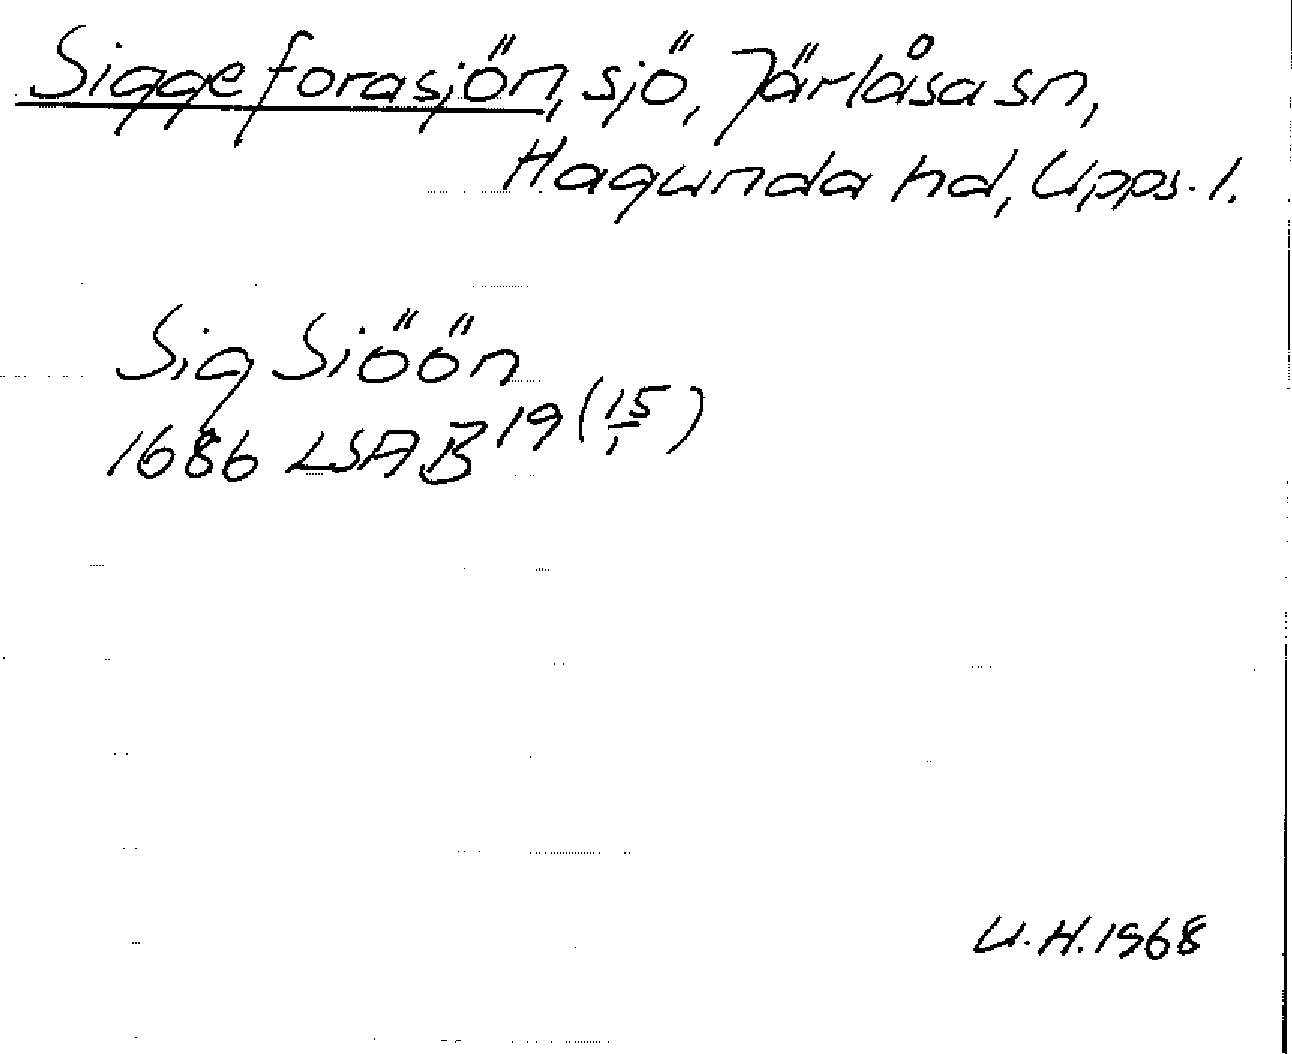 Siggeforasjön, sjö, Järlåsa sn,
Hagunda hd, Upps. l.
Sig Siöön
1686 LSA B 19 (15/1)
U.H. 1968